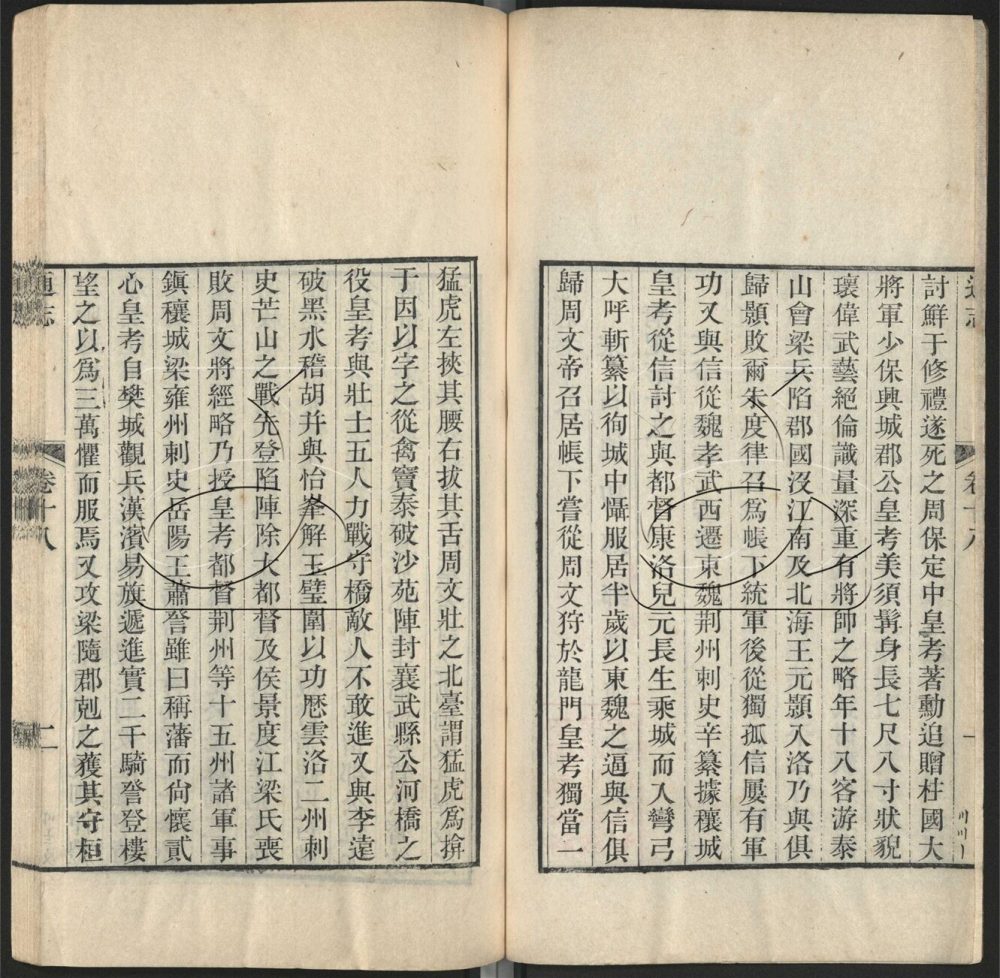 通志
卷十八
一
討鮮于修禮遂死之周保定中皇考著勳追贈柱國大
將軍少保興城郡公皇考美須髯身長七尺八寸狀貌
瓌偉武藝絕倫識量深重有將帥之略年十八客游泰
山會梁兵陷郡國沒江南及北海王元顥入洛乃與俱
歸顥敗爾朱度律召爲帳下統軍後從獨孤信屢有軍
功又與信從魏孝武西遷東魏荆州刺史辛纂據穰城
皇考從信討之與都督康洛兒元長生乘城而入彎弓
大呼斬纂以徇城中懾服居半歲以東魏之逼與信俱
歸周文帝召居帳下嘗從周文狩於龍門皇考獨當一
猛虎左挾其腰右拔其舌周文壯之北臺謂猛虎爲揜
于因以字之從禽竇泰破沙苑陣封襄武縣公河橋之
役皇考與壯士五人力戰守橋敵人不敢進又與李遠
破黑水稽胡并與怡峯解玉璧圍以功歷雲洛二州刺
史芒山之戰先登陷陣除大都督及侯景度江梁氏喪
敗周文將經略乃授皇考都督荆州等十五州諸軍事
鎭穰城梁雍州刺史岳陽王蕭詧雖曰稱藩而尙懷貳
心皇考自樊城觀兵漢濱易旗遞進實二千騎詧登樓
望之以爲三萬懼而服焉又攻梁隨郡剋之獲其守桓
通志
卷十八
二